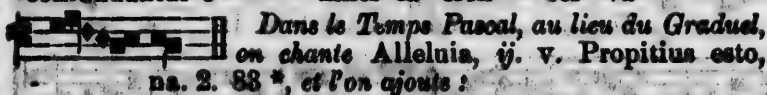 Dans le Temps Pascal, au lieu du Graduel,
on chante Alleluia, ij. v. Propitius esto,
na. 2. 88 *, et l'on ajoute :